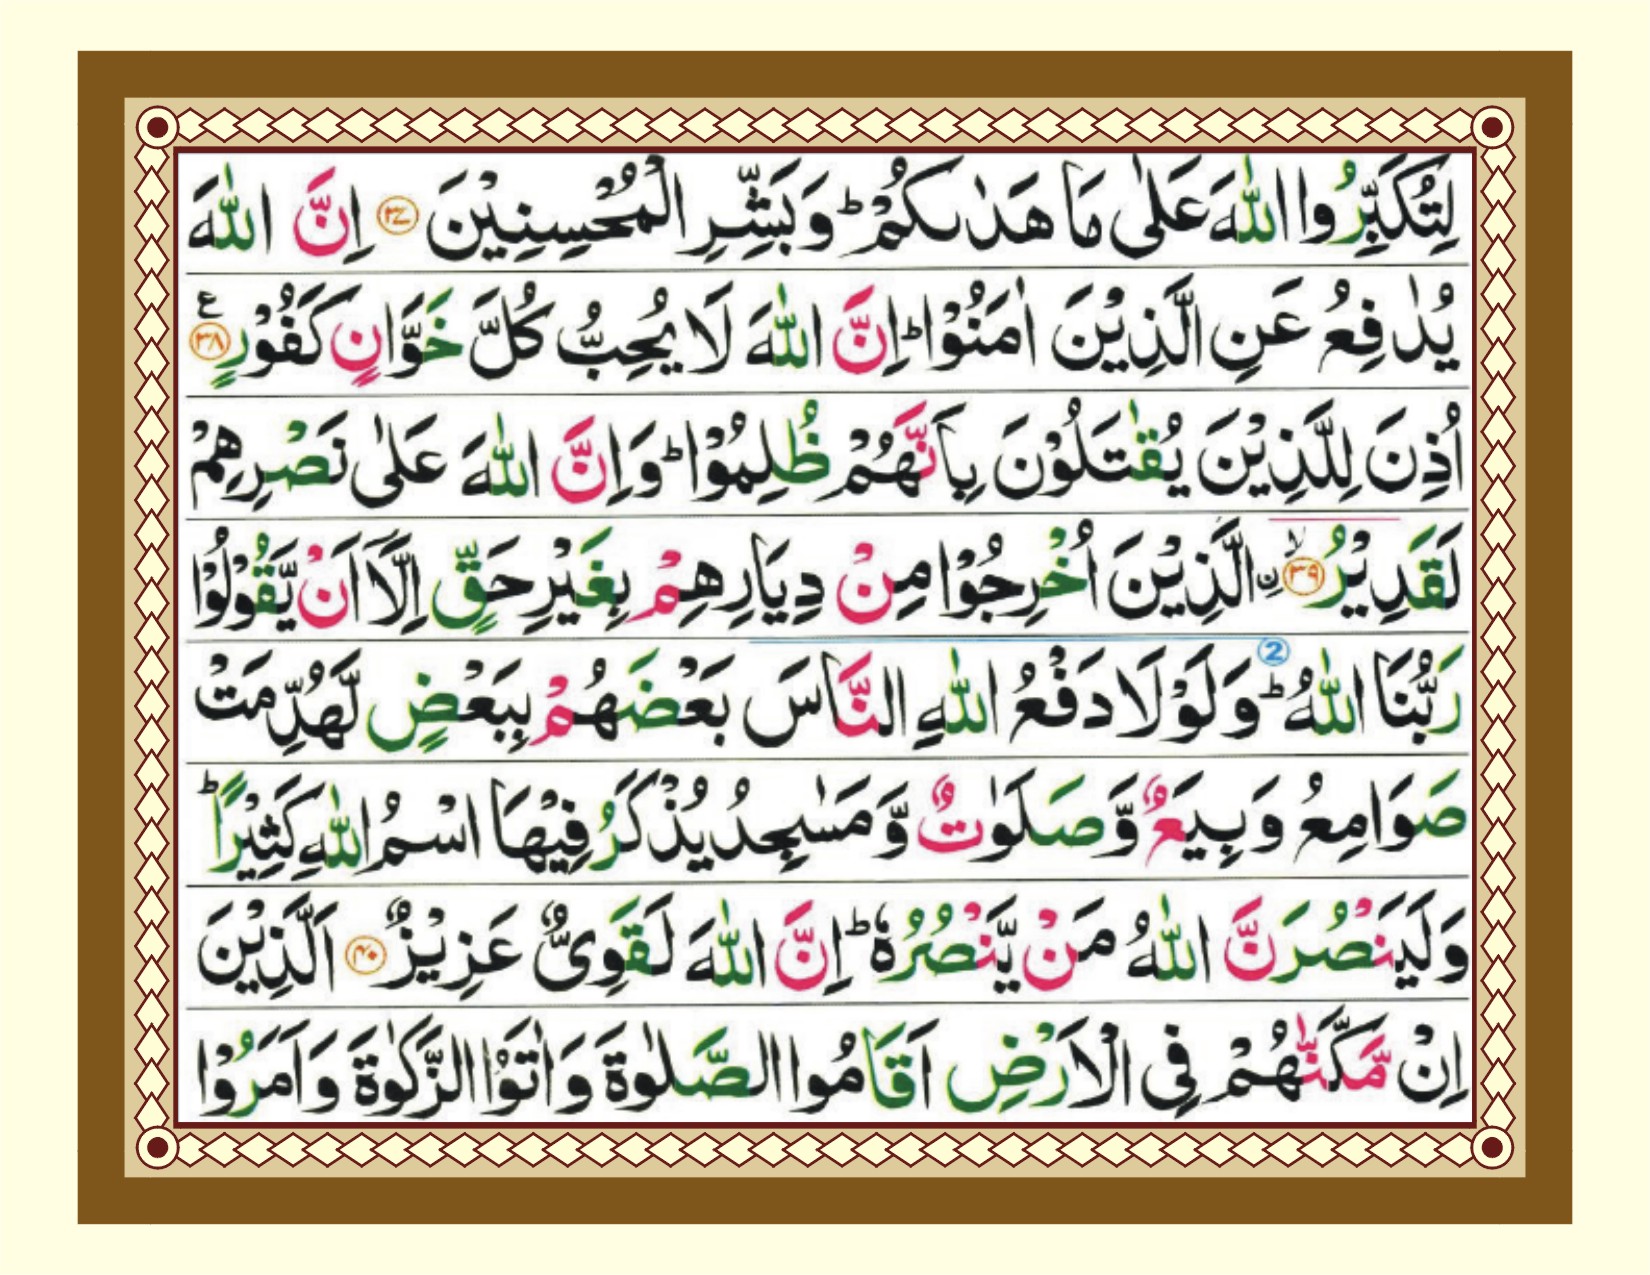 لِتُكَبِّرُوا اللّٰهَ عَلٰى مَا هَدٰىكُمْ ؕ وَبَشِّرِ الْمُحْسِنِيْنَ ﴿۳۷﴾ اِنَّ اللّٰهَ
يُدٰفِعُ عَنِ الَّذِيْنَ اٰمَنُوْا ؕ اِنَّ اللّٰهَ لَا يُحِبُّ كُلَّ خَوَّانٍ كَفُوْرٍ ﴿۳۸﴾ ع
اُذِنَ لِلَّذِيْنَ يُقٰتَلُوْنَ بِاَنَّهُمْ ظُلِمُوْا ؕ وَاِنَّ اللّٰهَ عَلٰى نَصْرِهِمْ
لَقَدِيْرُ ﴿۳۹﴾ۙ نِ الَّذِيْنَ اُخْرِجُوْا مِنْ دِيَارِهِمْ بِغَيْرِ حَقٍّ اِلَّاۤ اَنْ يَّقُوْلُوْا
رَبُّنَا اللّٰهُ ؕ ② وَلَوْلَا دَفْعُ اللّٰهِ النَّاسَ بَعْضَهُمْ بِبَعْضٍ لَّهُدِّمَتْ
صَوَامِعُ وَبِيَعٌ وَّصَلَوٰتٌ وَّمَسٰجِدُ يُذْكَرُ فِيْهَا اسْمُ اللّٰهِ كَثِيْرًا ؕ
وَلَيَنْصُرَنَّ اللّٰهُ مَنْ يَّنْصُرُهٗ ؕ اِنَّ اللّٰهَ لَقَوِىٌّ عَزِيْزٌ ﴿۴۰﴾ اَلَّذِيْنَ
اِنْ مَّكَّنّٰهُمْ فِى الْاَرْضِ اَقَامُوا الصَّلٰوةَ وَاٰتَوُا الزَّكٰوةَ وَاَمَرُوْا